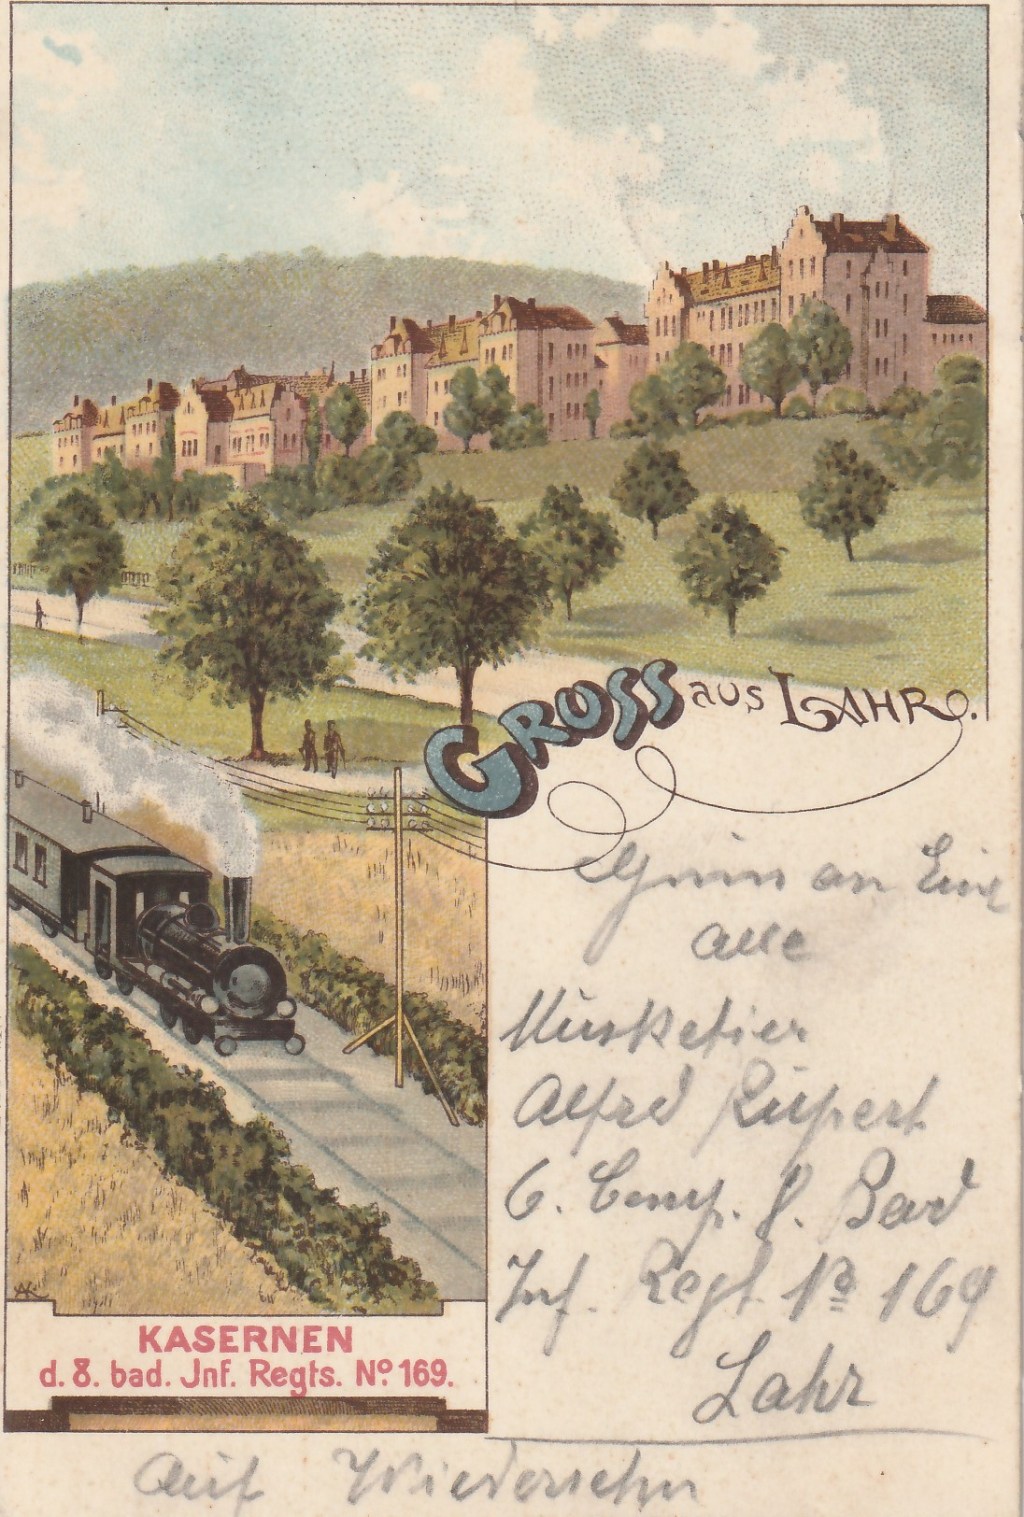 GRUSS aus LAHR.
an Eüch
alle
Musketier
Alfred Rupert
6. Comp. 8. Bad
Inf. Regt No 169
Lahr
KASERNEN
d. 8. bad. Jnf. Regts. No 169.
Auf Wiedersehn